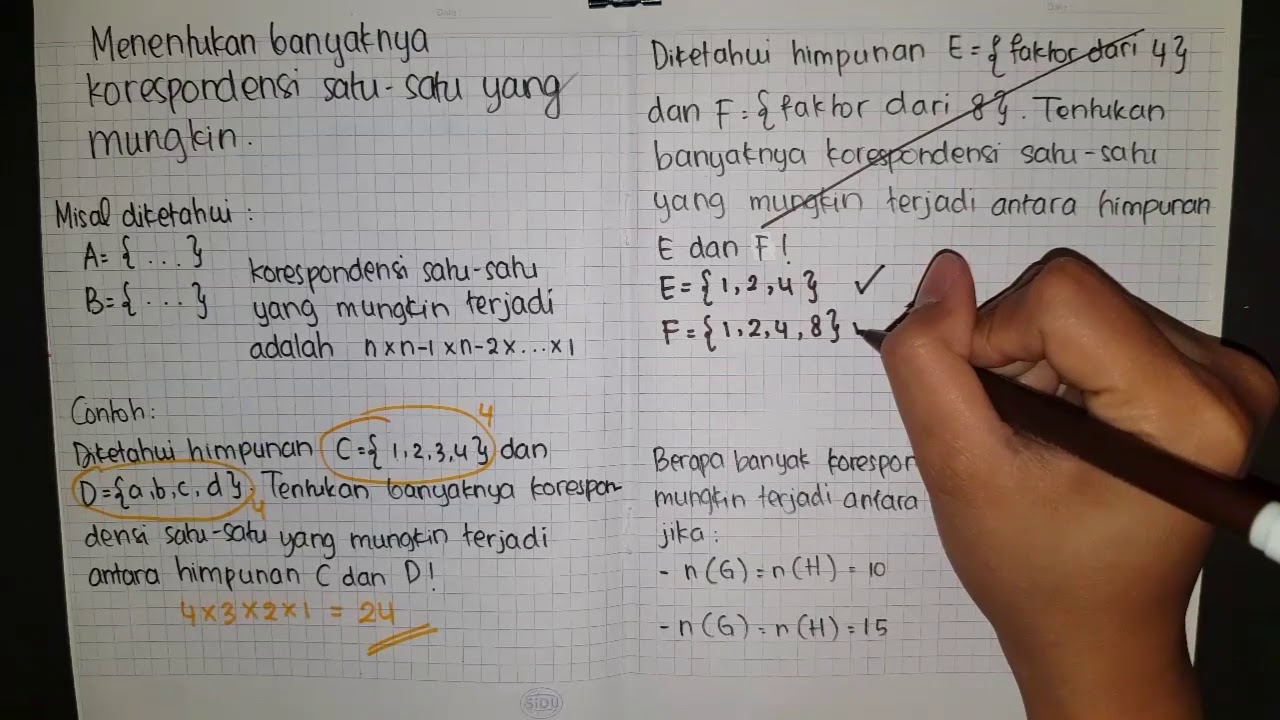 Menentukan banyaknya
korespondensi satu-satu yang
mungkin.
Misal diketahui :
A = { ... }
B = { ... }
korespondensi satu-satu
yang mungkin terjadi
adalah n x n-1 x n-2 x ... x 1
Contoh:
Diketahui himpunan C = { 1, 2, 3, 4 } dan
4
D = {a, b, c, d}. Tentukan banyaknya korespon-
4
densi satu-satu yang mungkin terjadi
antara himpunan C dan D!
4 x 3 x 2 x 1 = 24
Diketahui himpunan E = { faktor dari 4 }
dan F = { faktor dari 8 }. Tentukan
banyaknya korespondensi satu-satu
yang mungkin terjadi antara himpunan
E dan F!
E = { 1, 2, 4 } ✓
F = { 1, 2, 4, 8 }
Berapa banyak korespon
mungkin terjadi antara
jika :
- n (G) = n (H) = 10
- n (G) = n (H) = 15
SIDU